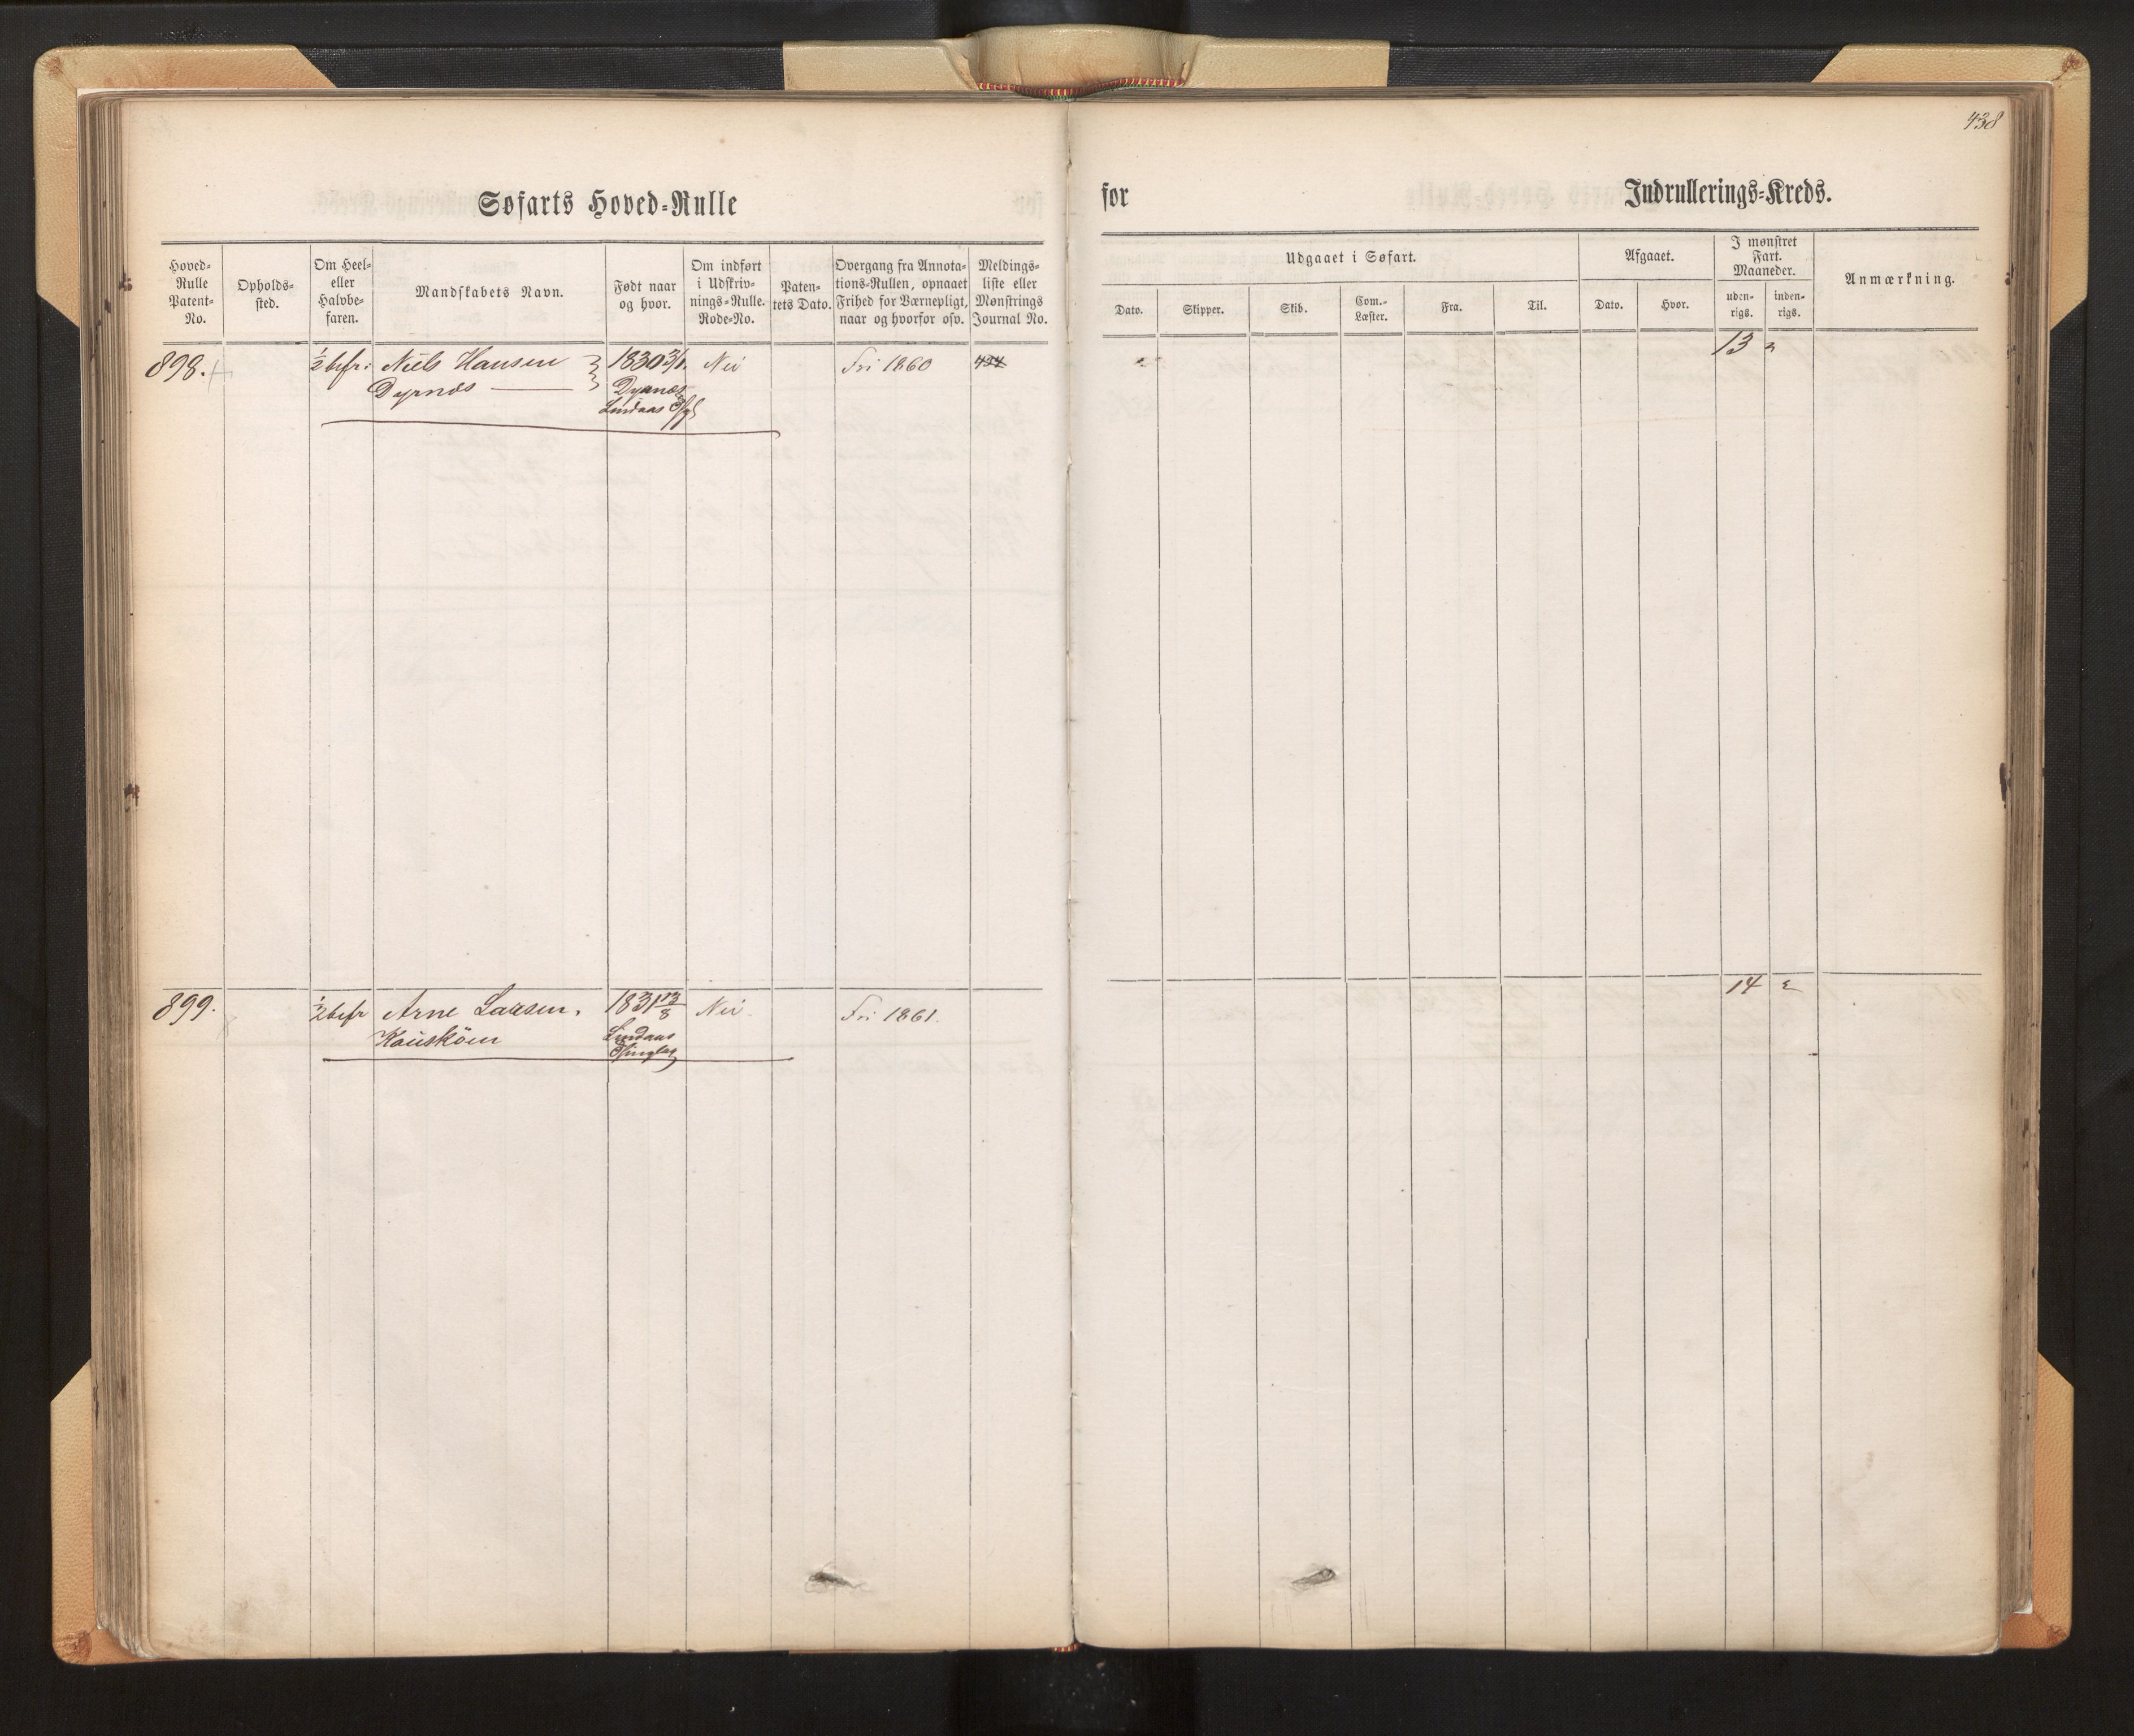 438
Søfarts Hoved-Rulle
for Indrullerings-Kreds.
Hoved-
Rulle
Patent-
No.
Opholds-
sted.
Om Heel-
eller
Halvbe-
faren.
Mandskabets Navn.
Født naar
og hvor.
Om indført
i Udskriv-
nings-Rulle.
Rode-No.
Paten-
tets Dato.
Overgang fra Annota-
tions-Rullen, opnaaet
Frihed for Værnepligt,
naar og hvorfor osv.
Meldings-
liste eller
Mønstrings
Journal No.
Udgaaet i Søfart.
Dato.
Skipper.
Skib.
Com.-
Læster.
Fra.
Til.
Afgaaet.
Dato.
Hvor.
I mønstret
Fart.
Maaneder.
uden-
rigs.
inden-
rigs.
Anmærkning.
898. ½ befr: Niels Hansen 1830 Nei Fri 1860 13
Dyrnæs Dyrnæs
Lindaas
899. ½ befr Arne Larsen. 1831 13/8 Nei. Fri 1861. 14
Lindaas
Thinglag